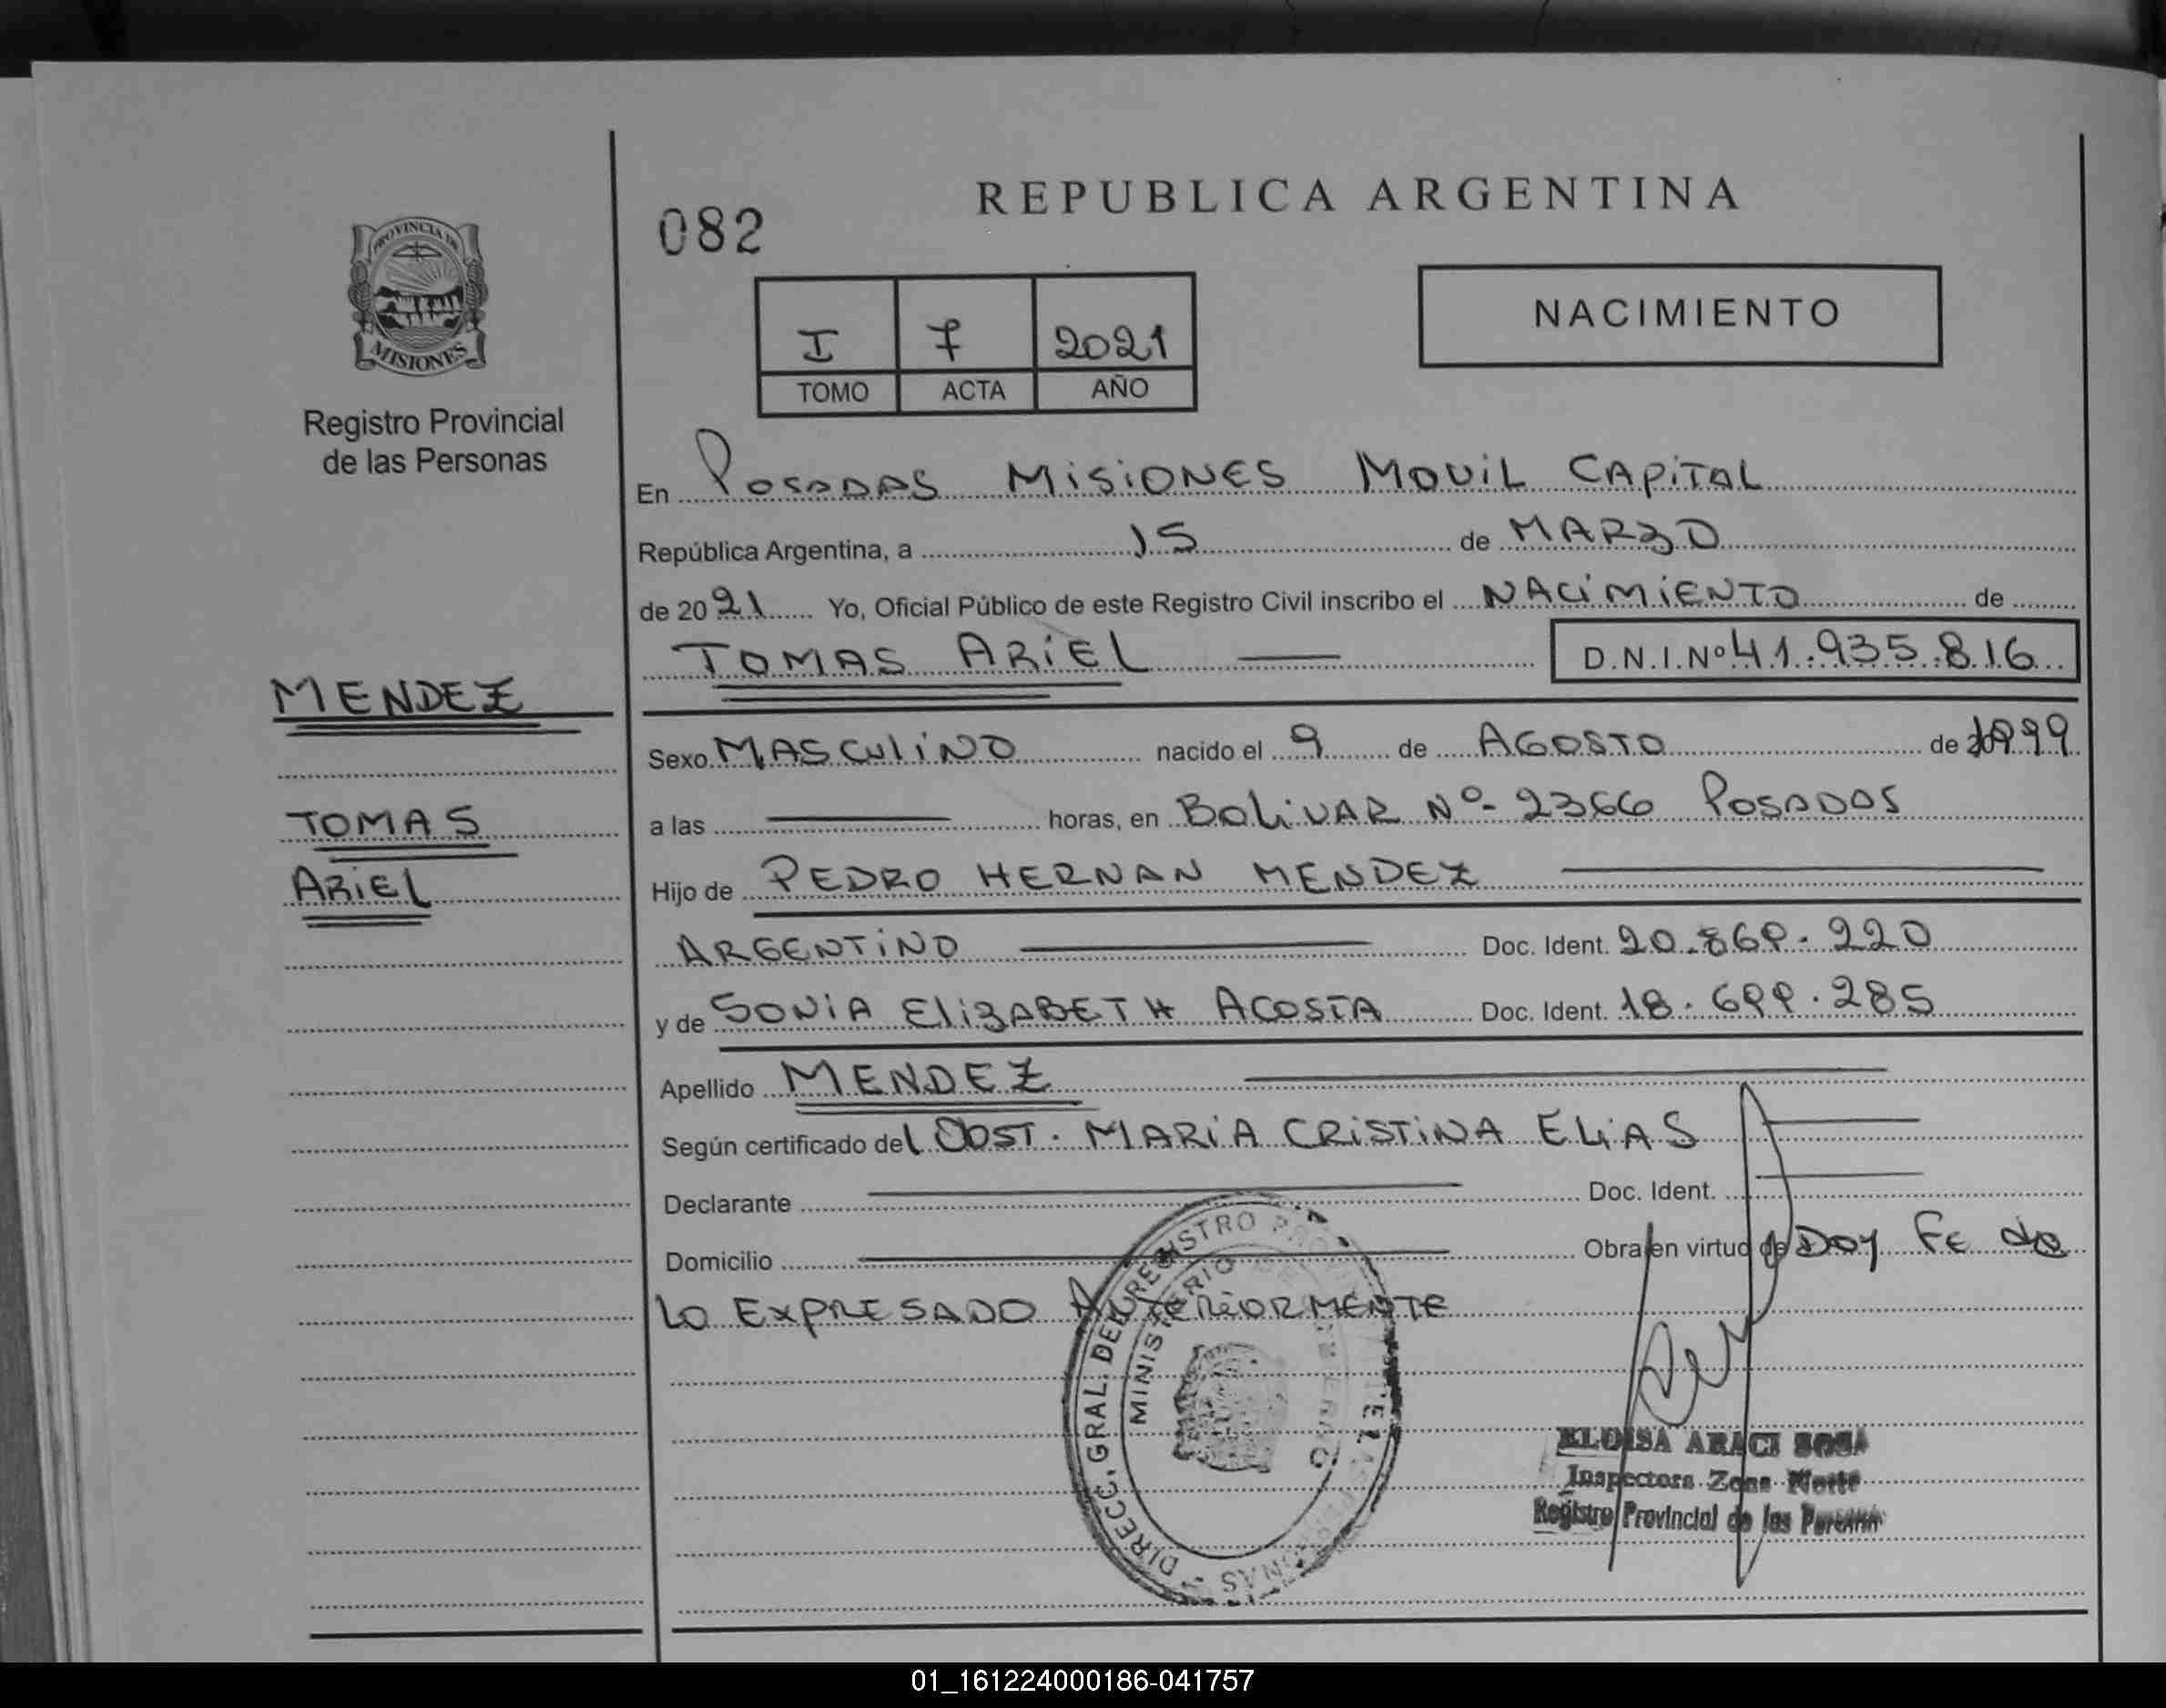 REPUBLICA ARGENTINA
082
PROVINCIA DE
MISIONES
Registro Provincial
de las Personas
I 7 2021
TOMO ACTA AÑO
NACIMIENTO
En POSADAS MISIONES MOVIL CAPITAL
República Argentina, a 15 de MARZO
de 2021 Yo, Oficial Público de este Registro Civil inscribo el NACIMIENTO de
TOMAS ARIEL D.N.I.Nº 41.935.816
MENDEZ
TOMAS
ARIEL
Sexo MASCULINO nacido el 9 de AGOSTO de 1999
a las horas, en BOLIVAR Nº 2366 POSADAS
Hijo de PEDRO HERNAN MENDEZ
ARGENTINO Doc. Ident. 20.869.220
y de SONIA ELIZABETH ACOSTA Doc. Ident. 18.699.285
Apellido MENDEZ
Según certificado del OBST. MARIA CRISTINA ELIAS
Declarante Doc. Ident.
Domicilio Obra en virtud de DOY FE de
LO EXPRESADO ANTERIORMENTE
DIRECC. GRAL. DEL REGISTRO
MINISTERIO
ELOISA ARACI SOSA
Inspectora Zona Norte
Registro Provincial de las Personas
01_161224000186-041757